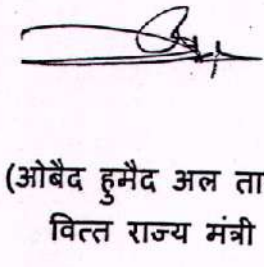 (ओबैद हुमैद अल ता
वित्त राज्य मंत्री